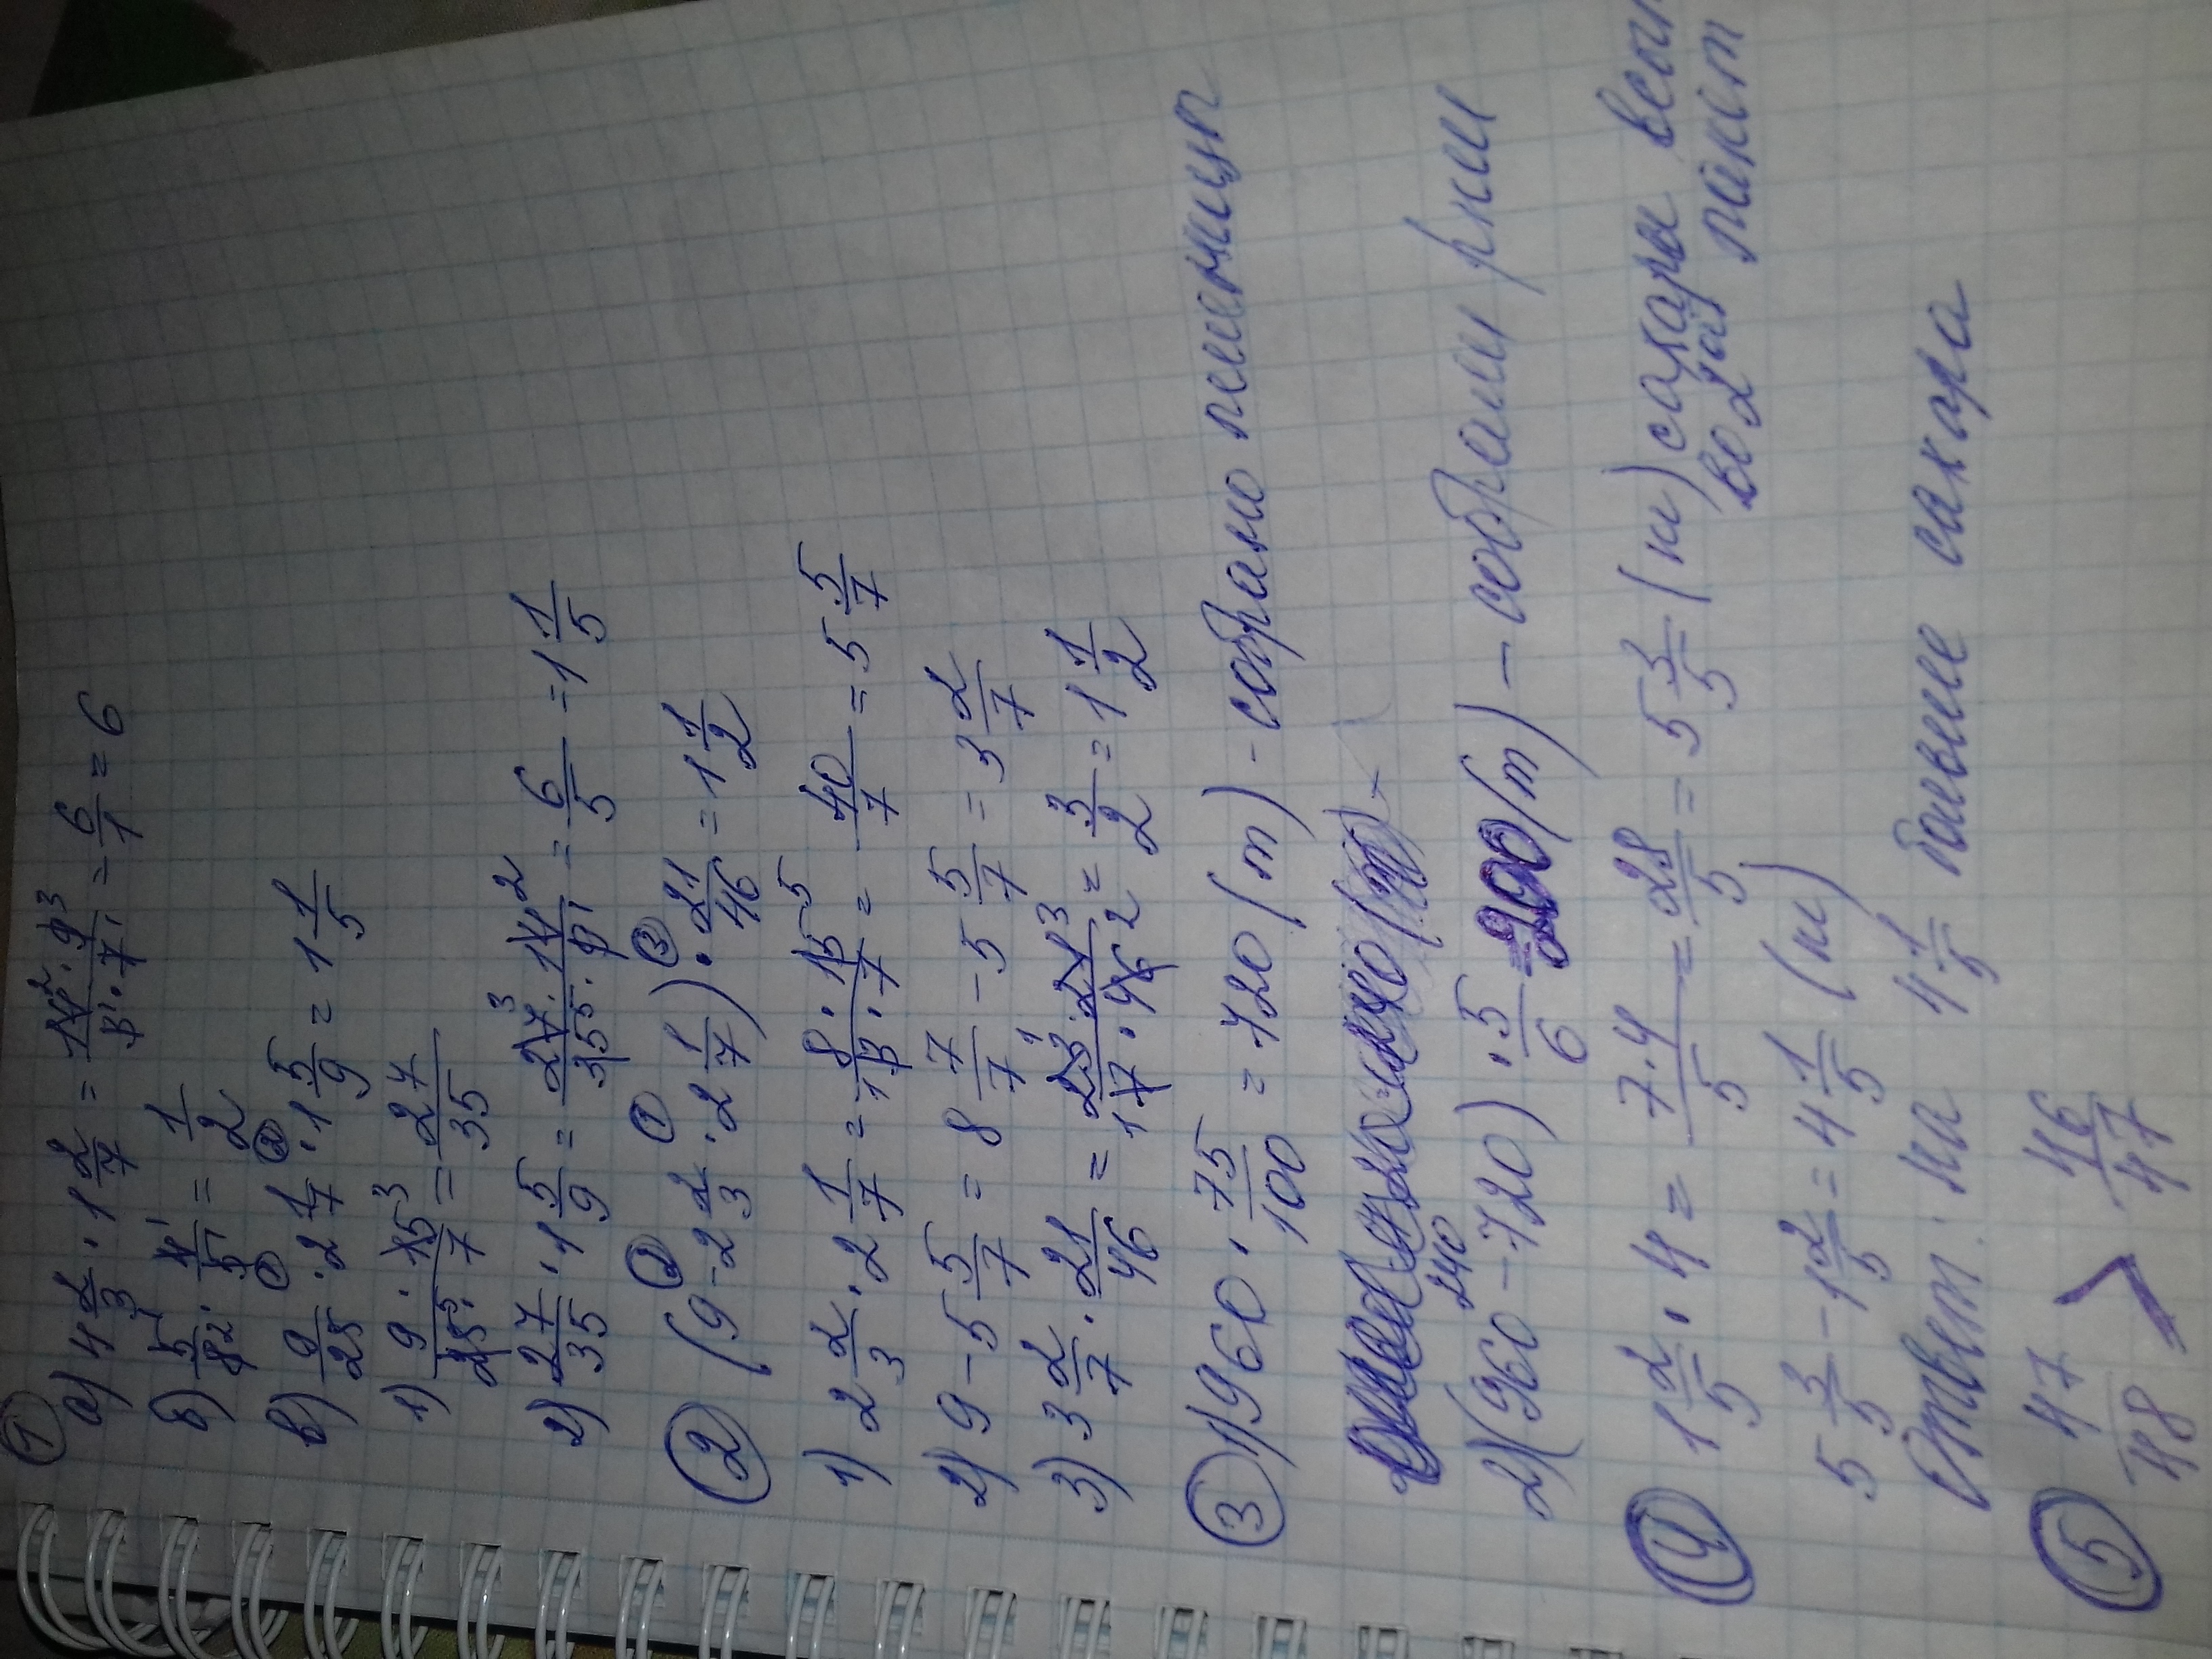 ①
а) 4 2/3 · 1 2/7 = 14² · 9³ / 3¹ · 7¹ = 6/1 = 6
б) 5¹/8² · 4¹/5¹ = 1/2
в) 9/25 ① · 2 1/7 ② · 1 5/9 = 1 1/5
1) 9/25⁵ · 15³/7 = 27/35
2) 27/35 · 1 5/9 = 27³ · 14² / 35⁵ · 9¹ = 6/5 = 1 1/5
② (9 ② - 2 2/3 ① · 2 1/7) ③ · 21/46 = 1 1/2
1) 2 2/3 · 2 1/7 = 8 · 15⁵ / 1 3 · 7 = 40/7 = 5 5/7
2) 9 - 5 5/7 = 8 7/7 - 5 5/7 = 3 2/7
3) 3 2/7 · 21/46 = 23¹ · 21³ / 1 7 · 46² = 3/2 = 1 1/2
③ 1) 960 · 75/100 = 720 (т) - собрано пшеницы
240
2) (960 - 720) · 5/6 = 200 (т) - собрали ржи
④ 1 2/5 · 4 = 7·4/5 = 28/5 = 5 3/5 (кг) сахара
во 2ой пакет
5 3/5 - 1 2/5 = 4 1/5 (кг)
Ответ: на 4 1/5 больше сахара
⑤ 47/48 > 46/47